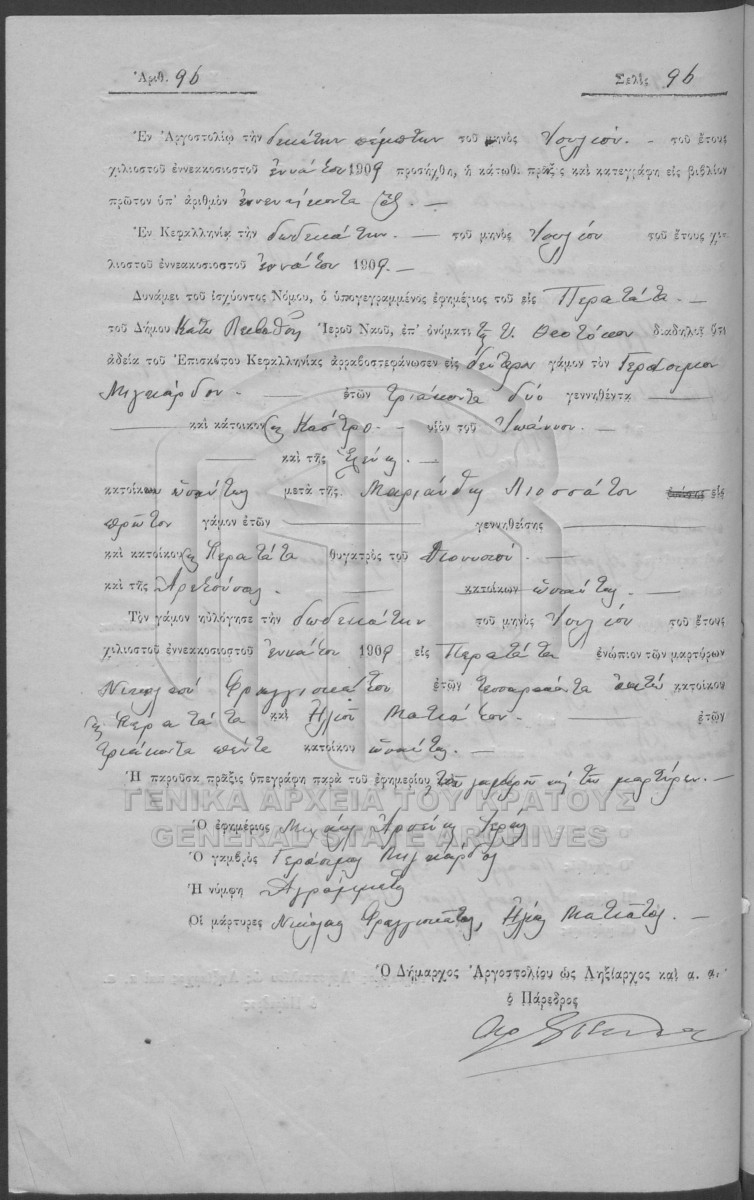 Ἀριθ. 96 Σελὶς 96
Ἐν Ἀργοστολίῳ τὴν δεκάτην πέμπτην τοῦ μηνὸς Ἰουλίου. — τοῦ ἔτους
χιλιοστοῦ ἐννεακοσιοστοῦ ἐννάτου 1909 προσήχθη, ἡ κάτωθι πρᾶξις καὶ κατεγράφη εἰς βιβλίον
πρῶτον ὑπ' ἀριθμὸν ἐννενήκοντα ἕξ. —
Ἐν Κεφαλληνίᾳ τὴν δωδεκάτην. — τοῦ μηνὸς Ἰουλίου τοῦ ἔτους χι-
λιοστοῦ ἐννεακοσιοστοῦ ἐννάτου 1909. —
Δυνάμει τοῦ ἰσχύοντος Νόμου, ὁ ὑπογεγραμμένος ἐφημέριος τοῦ εἰς Περατάτα. —
τοῦ Δήμου Ἱεροῦ Ναοῦ, ἐπ' ὀνόματι τῆς Υ. Θεοτόκου διαδηλοῖ ὅτι
ἀδείᾳ τοῦ Ἐπισκόπου Κεφαλληνίας ἀρραβοστεφάνωσεν εἰς δεύτερον γάμον τὸν Γεράσιμον
— ἐτῶν τριάκοντα δύο γεννηθέντα —
— καὶ κάτοικον Κάστρο — υἱὸν τοῦ Ἰωάννου. —
— καὶ τῆς Ἑλένης. —
κατοίκων ὡσαύτως μετὰ τῆς Μαριάνθης Λιοσσάτου εἰς
πρῶτον γάμον ἐτῶν — γεννηθείσης —
καὶ κατοίκου Περατάτα θυγατρὸς τοῦ Διονυσίου. —
καὶ τῆς Ἀρεθούσας. — κατοίκων ὡσαύτως. —
Τὸν γάμον ηὐλόγησε τὴν δωδεκάτην τοῦ μηνὸς Ἰουλίου τοῦ ἔτους
χιλιοστοῦ ἐννεακοσιοστοῦ ἐννάτου 1909 εἰς Περατάτα ἐνώπιον τῶν μαρτύρων
Νικολάου Φραγγισκάτου ἐτῶν τεσσαράκοντα ὀκτὼ κατοίκου
Περατάτα καὶ Ἠλίου Ματιάτου. — ἐτῶν
τριάκοντα πέντε κατοίκου ὡσαύτως. —
Ἡ παροῦσα πρᾶξις ὑπεγράφη παρὰ τοῦ ἐφημερίου τοῦ γαμβροῦ καὶ τῶν μαρτύρων. —
ΓΕΝΙΚΑ ΑΡΧΕΙΑ ΤΟΥ ΚΡΑΤΟΥΣ
GENERAL STATE ARCHIVES
Ὁ ἐφημέριος Μιχαὴλ Ἀρσένης Ἱερεύς
Ὁ γαμβρὸς Γεράσιμος
Ἡ νύμφη Ἀγράμματος
Οἱ μάρτυρες Νικόλαος Φραγγισκάτος, Ἠλίας Ματιάτος. —
Ὁ Δήμαρχος Ἀργοστολίου ὡς Ληξίαρχος καὶ α. α.
ὁ Πάρεδρος